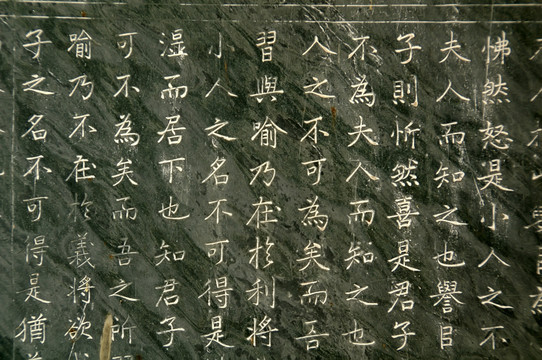 怫然怒是小人之不
夫人而知之也譽㠯
子則忻然喜是君子
不為夫人而知之也
人之不可為矣而吾
習與喻乃在於利將
小人之名不可得是
湿而居下也知君子
可不為矣而吾之所
喻乃不在於義將欲
子之名不可得是猶